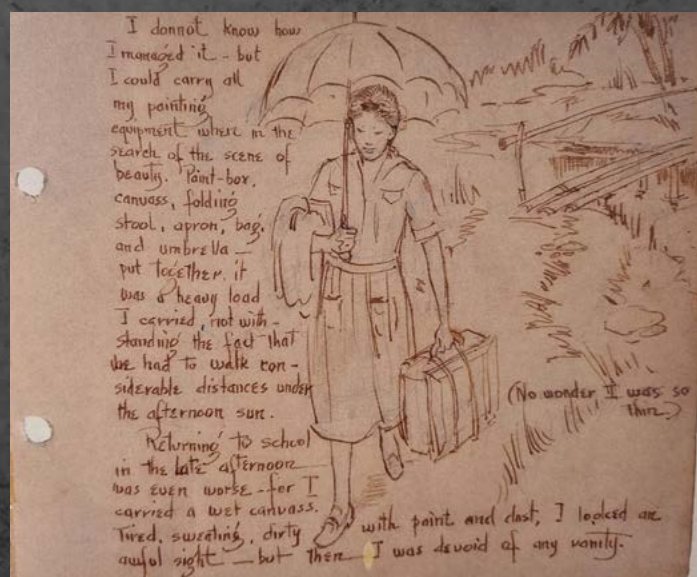 I donnot know how
I managed it - but
I could carry all
my painting
equipment where in the
search of the scene of
beauty. Paint-box,
canvass, folding
stool, apron, bag,
and umbrella —
put together, it
was a heavy load
I carried, not with-
standing the fact that
we had to walk con-
siderable distances under
the afternoon sun.
(No wonder I was so
thin)
Returning to school
in the late afternoon
was even worse - for I
carried a wet canvass.
Tired, sweating, dirty with paint and dust, I looked an
awful sight — but then I was devoid of any vanity.